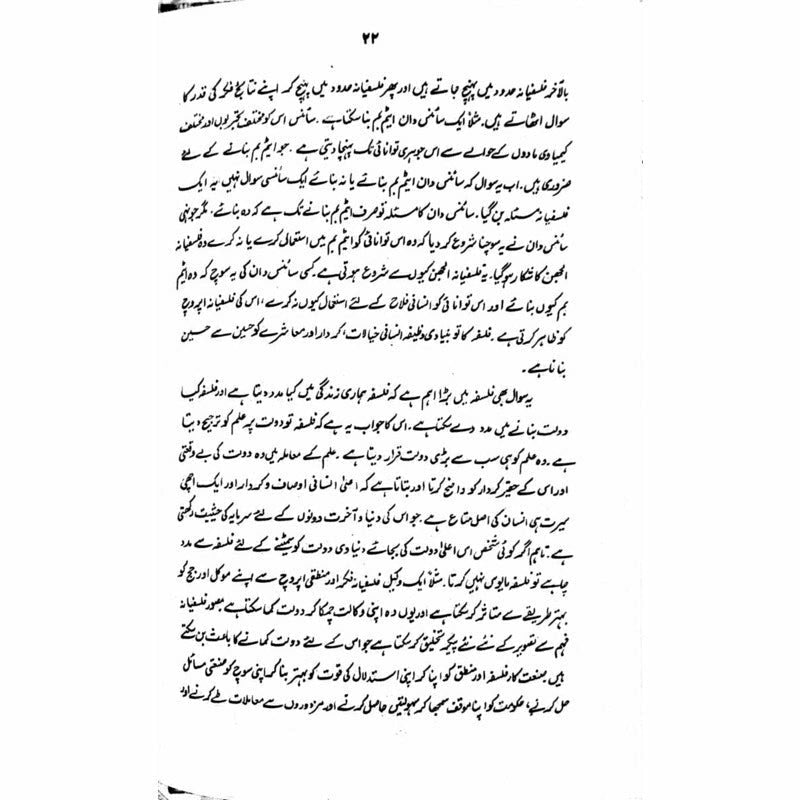 ۲۲
بالآخر فلسفیانہ حدود میں پہنچ جاتے ہیں اور پھر فلسفیانہ حدود میں پہنچ کر اپنے نتائج فکر کی قدر کا
سوال اٹھاتے ہیں۔ مثلاً ایک سائنس دان ایٹم بم بنا سکتا ہے۔ سائنس اس کو مختلف تجربوں اور مختلف
کیمیاوی مادوں کے حوالے سے اس جوہری توانائی تک پہنچا دیتی ہے۔ جو ایٹم بم بنانے کے لئے
ضروری ہیں۔ اب یہ سوال کہ سائنس دان ایٹم بم بنائے یا نہ بنائے ایک سائنسی سوال نہیں یہ ایک
فلسفیانہ مسئلہ بن گیا۔ سائنس دان کا مسئلہ تو صرف ایٹم بم بنانے تک ہے کہ وہ بنائے، مگر جونہی
سائنس دان نے یہ سوچنا شروع کر دیا کہ وہ اس توانائی کو ایٹم بم میں استعمال کرے یا نہ کرے وہ فلسفیانہ
الجھن کا شکار ہو گیا۔ یہ فلسفیانہ الجھن کیوں سے شروع ہوتی ہے۔ کسی سائنس دان کی یہ سوچ کہ وہ ایٹم
بم کیوں بنائے اور اس توانائی کو انسانی فلاح کے لئے استعمال کیوں نہ کرے، اس کی فلسفیانہ اپروچ
کو ظاہر کرتی ہے۔ فلسفہ کا تو بنیادی وظیفہ انسانی خیالات، کردار اور معاشرے کو حسین سے حسین
بنانا ہے۔
یہ سوال بھی فلسفہ میں بڑا اہم ہے کہ فلسفہ ہماری زندگی میں کیا مدد دیتا ہے اور فلسفہ کیا
دولت بنانے میں مدد دے سکتا ہے۔ اس کا جواب یہ ہے کہ فلسفہ تو دولت پہ علم کو ترجیح دیتا
ہے۔ وہ علم کو ہی سب سے بڑی دولت قرار دیتا ہے۔ علم کے معاملہ میں وہ دولت کی بے وقعتی
اور اس کے حقیر کردار کو واضح کرتا اور بتاتا ہے کہ اعلیٰ انسانی اوصاف و کردار اور ایک اچھی
سیرت ہی انسان کی اصل متاع ہے۔ جو اس کی دنیا و آخرت دونوں کے لئے سرمایہ کی حیثیت رکھتی
ہے۔ تاہم اگر کوئی شخص اس اعلیٰ دولت کی بجائے دنیاوی دولت کو سمیٹنے کے لئے فلسفہ سے مدد
چاہے تو فلسفہ مایوس نہیں کرتا۔ مثلاً ایک وکیل فلسفیانہ فکر اور منطقی اپروچ سے اپنے موکل اور جج کو
بہتر طریقے سے متاثر کر سکتا ہے اور یوں وہ اپنی وکالت چمکا کر دولت کما سکتا ہے مصور فلسفیانہ
فہم سے تصویر کے نئے نئے پیکر تخلیق کر سکتا ہے جو اس کے لئے دولت کمانے کا باعث بن سکتے
ہیں۔ صنعت کار فلسفہ اور منطق کو اپنا کر اپنی استدلال کی قوت کو بہتر بنا کر اپنی سوچ کو صنعتی مسائل
حل کرنے، حکومت کو اپنا موقف سمجھا کر سہولتیں حاصل کرنے اور مزدوروں سے معاملات طے کرنے اور